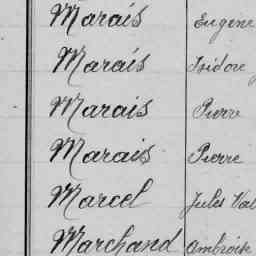 Marais Eugène
Marais Isidore
Marais Pierre
Marais Pierre
Marcel Jules
Marchand Ambroise